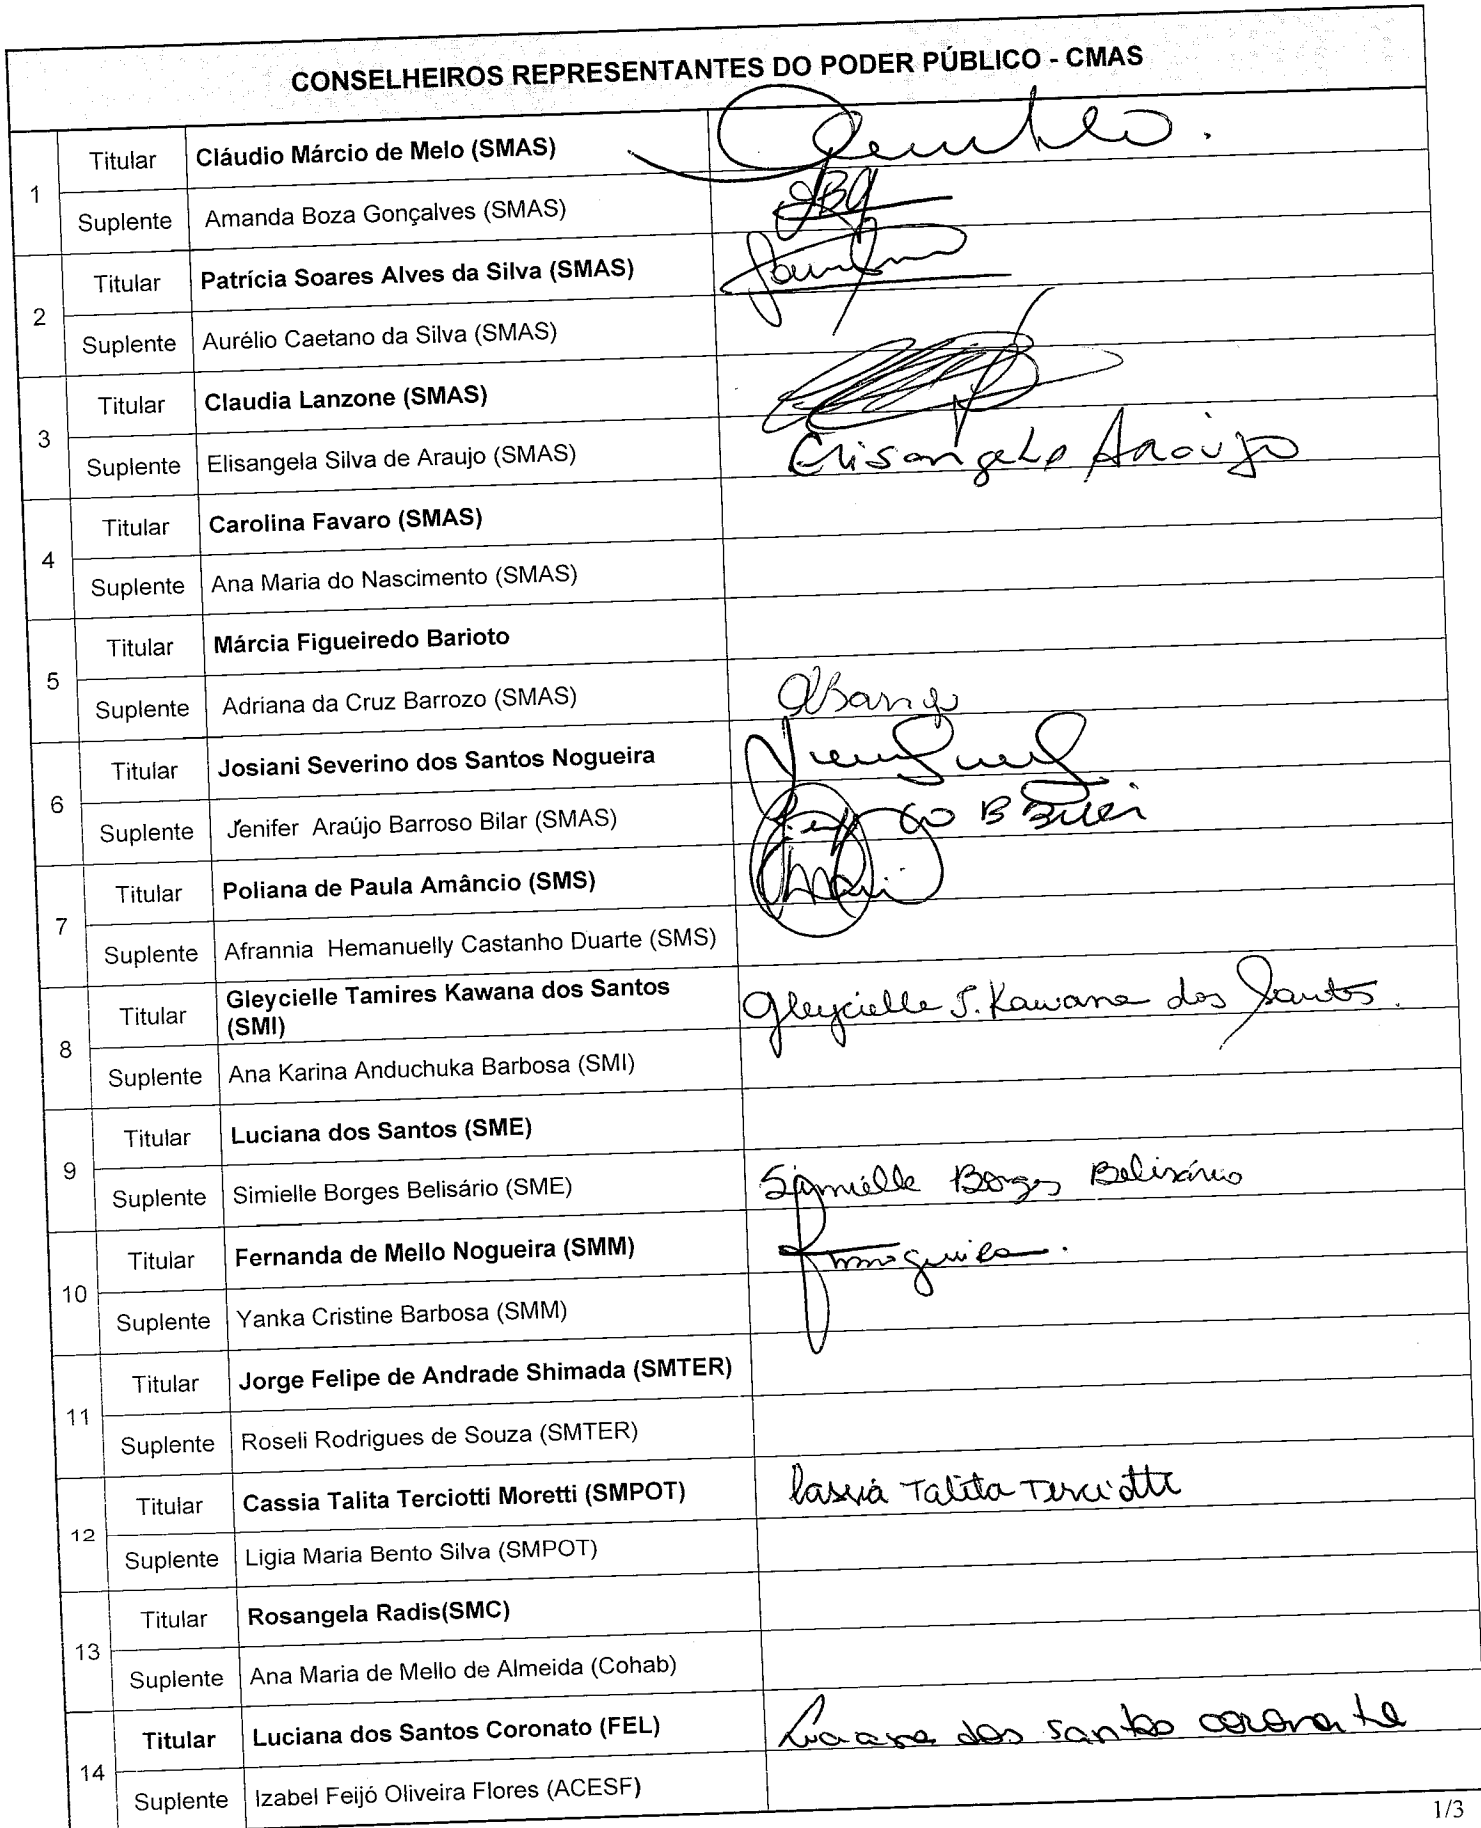 CONSELHEIROS REPRESENTANTES DO PODER PÚBLICO - CMAS
1
Titular Cláudio Márcio de Melo (SMAS)
Suplente Amanda Boza Gonçalves (SMAS)
2
Titular Patrícia Soares Alves da Silva (SMAS)
Suplente Aurélio Caetano da Silva (SMAS)
3
Titular Claudia Lanzone (SMAS)
Suplente Elisangela Silva de Araujo (SMAS) Elisangela Araujo
4
Titular Carolina Favaro (SMAS)
Suplente Ana Maria do Nascimento (SMAS)
5
Titular Márcia Figueiredo Barioto
Suplente Adriana da Cruz Barrozo (SMAS)
6
Titular Josiani Severino dos Santos Nogueira
Suplente Jenifer Araújo Barroso Bilar (SMAS)
7
Titular Poliana de Paula Amâncio (SMS)
Suplente Afrannia Hemanuelly Castanho Duarte (SMS)
8
Titular Gleycielle Tamires Kawana dos Santos
(SMI) Gleycielle T. Kawana dos Santos.
Suplente Ana Karina Anduchuka Barbosa (SMI)
9
Titular Luciana dos Santos (SME)
Suplente Simielle Borges Belisário (SME) Simielle Borges Belisário
10
Titular Fernanda de Mello Nogueira (SMM)
Suplente Yanka Cristine Barbosa (SMM)
11
Titular Jorge Felipe de Andrade Shimada (SMTER)
Suplente Roseli Rodrigues de Souza (SMTER)
12
Titular Cassia Talita Terciotti Moretti (SMPOT) Cassia Talita Terciotti
Suplente Ligia Maria Bento Silva (SMPOT)
13
Titular Rosangela Radis(SMC)
Suplente Ana Maria de Mello de Almeida (Cohab)
14
Titular Luciana dos Santos Coronato (FEL) Luciana dos Santos Coronato
Suplente Izabel Feijó Oliveira Flores (ACESF)
1/3